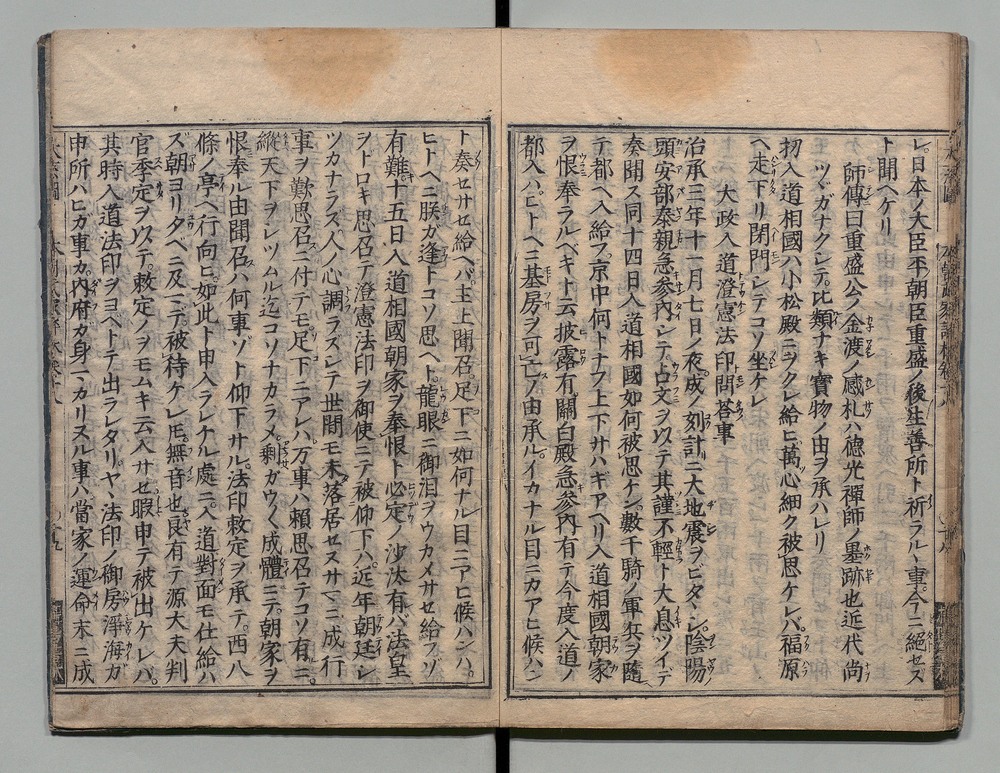 レ。日本ノ大臣平ノ朝臣重盛ノ後生善所ト祈ラルト重。今ニ絶セス
ト聞ヘケリ
師傳曰重盛公ノ金渡ノ感札ハ徳光禪師ノ墨跡也近代尚
ツヽガナクシテ。比類ナキ寶物ノ由ヲ承ハレリ
扨入道相國ハ小松殿ニヲクレ給ヒ萬心細ク被思ケレバ福原
ヘ走下リ閉門シテコソ坐ケレ
大政入道澄憲法印問答事
治承三年十一月七日ノ夜。戌ノ刻計ニ大地震ヲビタヽシ。陰陽
頭安部泰親。急参内シテ。占文ヲ以テ其謹不輕ト大息ツイテ
奏聞ス同十四日入道相國如何被思ケン。數千騎ノ軍兵ヲ隨
テ都ヘ入給フ。京中何トナフ上下サハギアヘリ入道相國朝家
ヲ恨奉ラルベキナト云披露有。關白殿急参内有テ今度入道ノ
都入ハ。ヒトヘニ基房ヲ可亡ノ由承ル。イカナル目ニカアヒ候ハン
ト奏セサセ給ヘバ。主上聞召足下ニ如何ナル目ニアヒ候ハンハ。
ヒトヘニ朕ガ逢トコソ思ヘト。龍眼ニ御泪ヲウカメサセ給フゾ
有難キ十五日入道相國朝家ヲ奉恨ト必定ノ沙汰有バ法皇
ヲトロキ思召テ澄憲法印ヲ御使ニテ被仰下ハ。近年朝廷シ
ツカナラズ。人ノ心調ラズシテ世間モ未落居セスサマニ成行
事ヲ歎思召ニ付テモ足下ニアレハ万事ハ賴思召テコソ有ニ。
縱天下ヲシツムル迄コソナカラメ。剩ガウ〱成體ニテ。朝家ヲ
恨奉ル由聞召ハ何事ゾト仰下サル。法印敕定ヲ承テ。西八
條ノ亭ヘ行向ヒ。如此ト申入ラレケル處ニ。入道對面モ仕給ハ
ス。朝ヨリタベニ及マテ。被待ケレ𪜈無音也良有テ源大夫判
官季定ヲ以テ。敕定ノヲモムキ云入サセ暇申テ被出ケレバ。
其時入道法印ヲヨベトテ出ラレタリヤヽ法印ノ御房淨海ガ
申所ハヒガ事カ。内府ガ身マカリヌル事ハ。當家ノ運命末ニ成